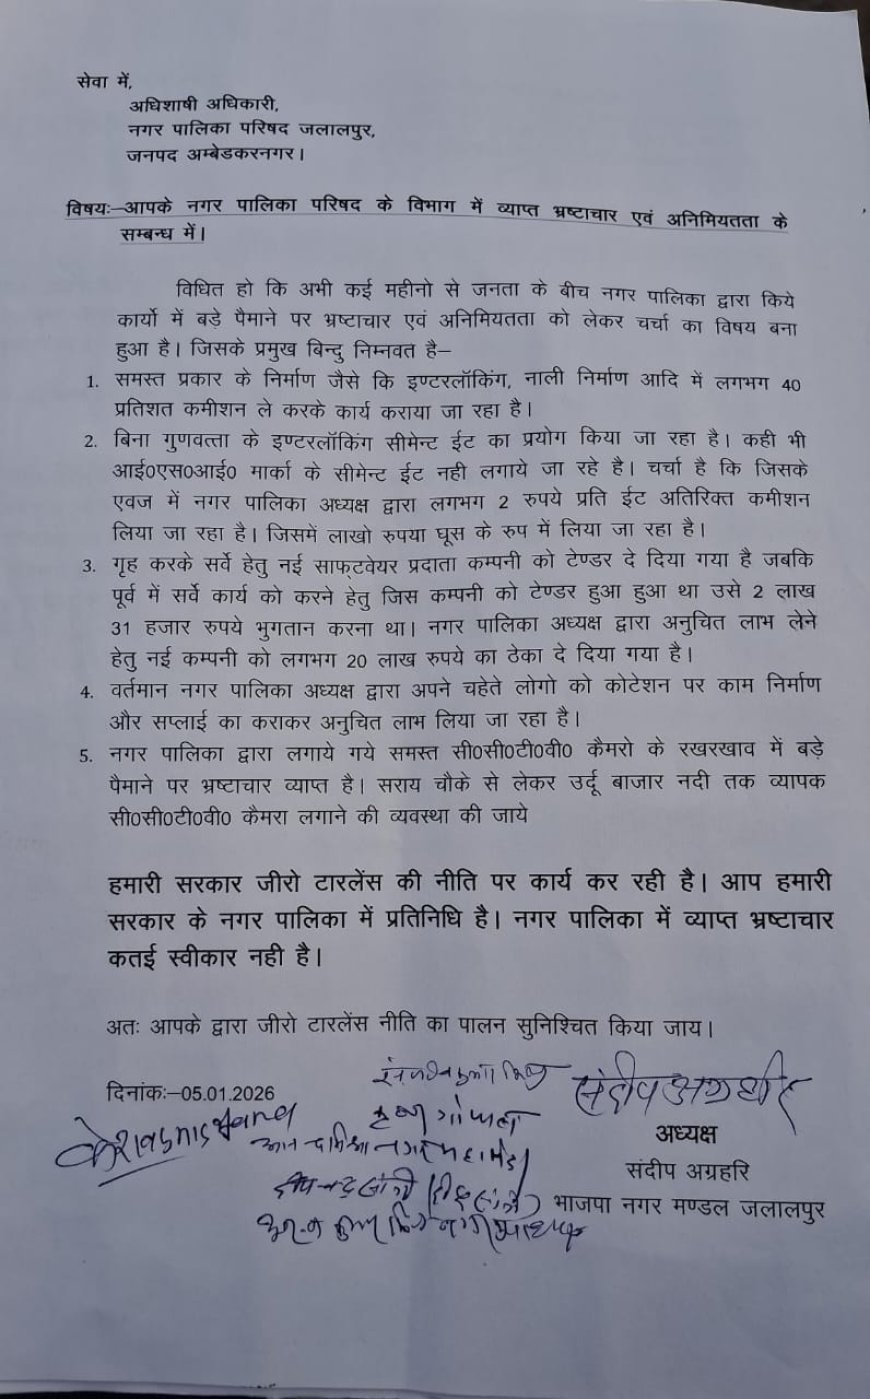 सेवा में,
अधिशाषी अधिकारी,
नगर पालिका परिषद जलालपुर,
जनपद अम्बेडकरनगर।
विषयः–आपके नगर पालिका परिषद के विभाग में व्याप्त भ्रष्टाचार एवं अनिमियतता के
सम्बन्ध में।
विधित हो कि अभी कई महीनो से जनता के बीच नगर पालिका द्वारा किये
कार्यो में बड़े पैमाने पर भ्रष्टाचार एवं अनिमियतता को लेकर चर्चा का विषय बना
हुआ है। जिसके प्रमुख बिन्दु निम्नवत है–
1. समस्त प्रकार के निर्माण जैसे कि इण्टरलॉकिंग, नाली निर्माण आदि में लगभग 40
प्रतिशत कमीशन ले करके कार्य कराया जा रहा है।
2. बिना गुणवत्ता के इण्टरलॉकिंग सीमेन्ट ईट का प्रयोग किया जा रहा है। कही भी
आई0एस0आई0 मार्का के सीमेन्ट ईट नही लगाये जा रहे है। चर्चा है कि जिसके
एवज में नगर पालिका अध्यक्ष द्वारा लगभग 2 रुपये प्रति ईट अतिरिक्त कमीशन
लिया जा रहा है। जिसमें लाखो रुपया घूस के रुप में लिया जा रहा है।
3. गृह करके सर्वे हेतु नई साफ्टवेयर प्रदाता कम्पनी को टेण्डर दे दिया गया है जबकि
पूर्व में सर्वे कार्य को करने हेतु जिस कम्पनी को टेण्डर हुआ हुआ था उसे 2 लाख
31 हजार रुपये भुगतान करना था। नगर पालिका अध्यक्ष द्वारा अनुचित लाभ लेने
हेतु नई कम्पनी को लगभग 20 लाख रुपये का ठेका दे दिया गया है।
4. वर्तमान नगर पालिका अध्यक्ष द्वारा अपने चहेते लोगो को कोटेशन पर काम निर्माण
और सप्लाई का कराकर अनुचित लाभ लिया जा रहा है।
5. नगर पालिका द्वारा लगाये गये समस्त सी0सी0टी0वी0 कैमरो के रखरखाव में बड़े
पैमाने पर भ्रष्टाचार व्याप्त है। सराय चौके से लेकर उर्दू बाजार नदी तक व्यापक
सी0सी0टी0वी0 कैमरा लगाने की व्यवस्था की जाये
हमारी सरकार जीरो टारलेंस की नीति पर कार्य कर रही है। आप हमारी
सरकार के नगर पालिका में प्रतिनिधि है। नगर पालिका में व्याप्त भ्रष्टाचार
कतई स्वीकार नही है।
अतः आपके द्वारा जीरो टारलेंस नीति का पालन सुनिश्चित किया जाय।
दिनांकः–05.01.2026
संदीप अग्रहरि
कृष्ण गोपाल
अध्यक्ष
संदीप अग्रहरि
भाजपा नगर मण्डल जलालपुर